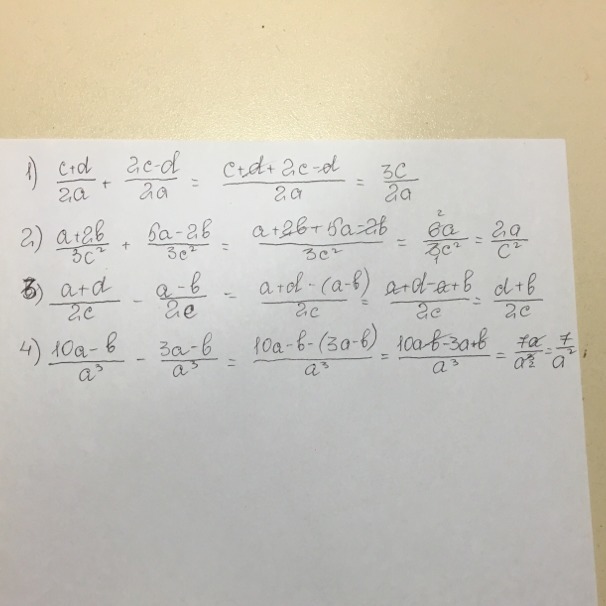 1) (c+d)/(2a) + (2c-d)/(2a) = (c+d+2c-d)/(2a) = 3c/(2a)
2) (a+2b)/(3c²) + (5a-2b)/(3c²) = (a+2b+5a-2b)/(3c²) = 6a/(3c²) 2 = 2a/c²
3) (a+d)/(2c) - (a-b)/(2c) = (a+d-(a-b))/(2c) = (a+d-a+b)/(2c) = (d+b)/(2c)
4) (10a-b)/a³ - (3a-b)/a³ = (10a-b-(3a-b))/a³ = (10a-b-3a+b)/a³ = 7a/a³ 2 = 7/a²;